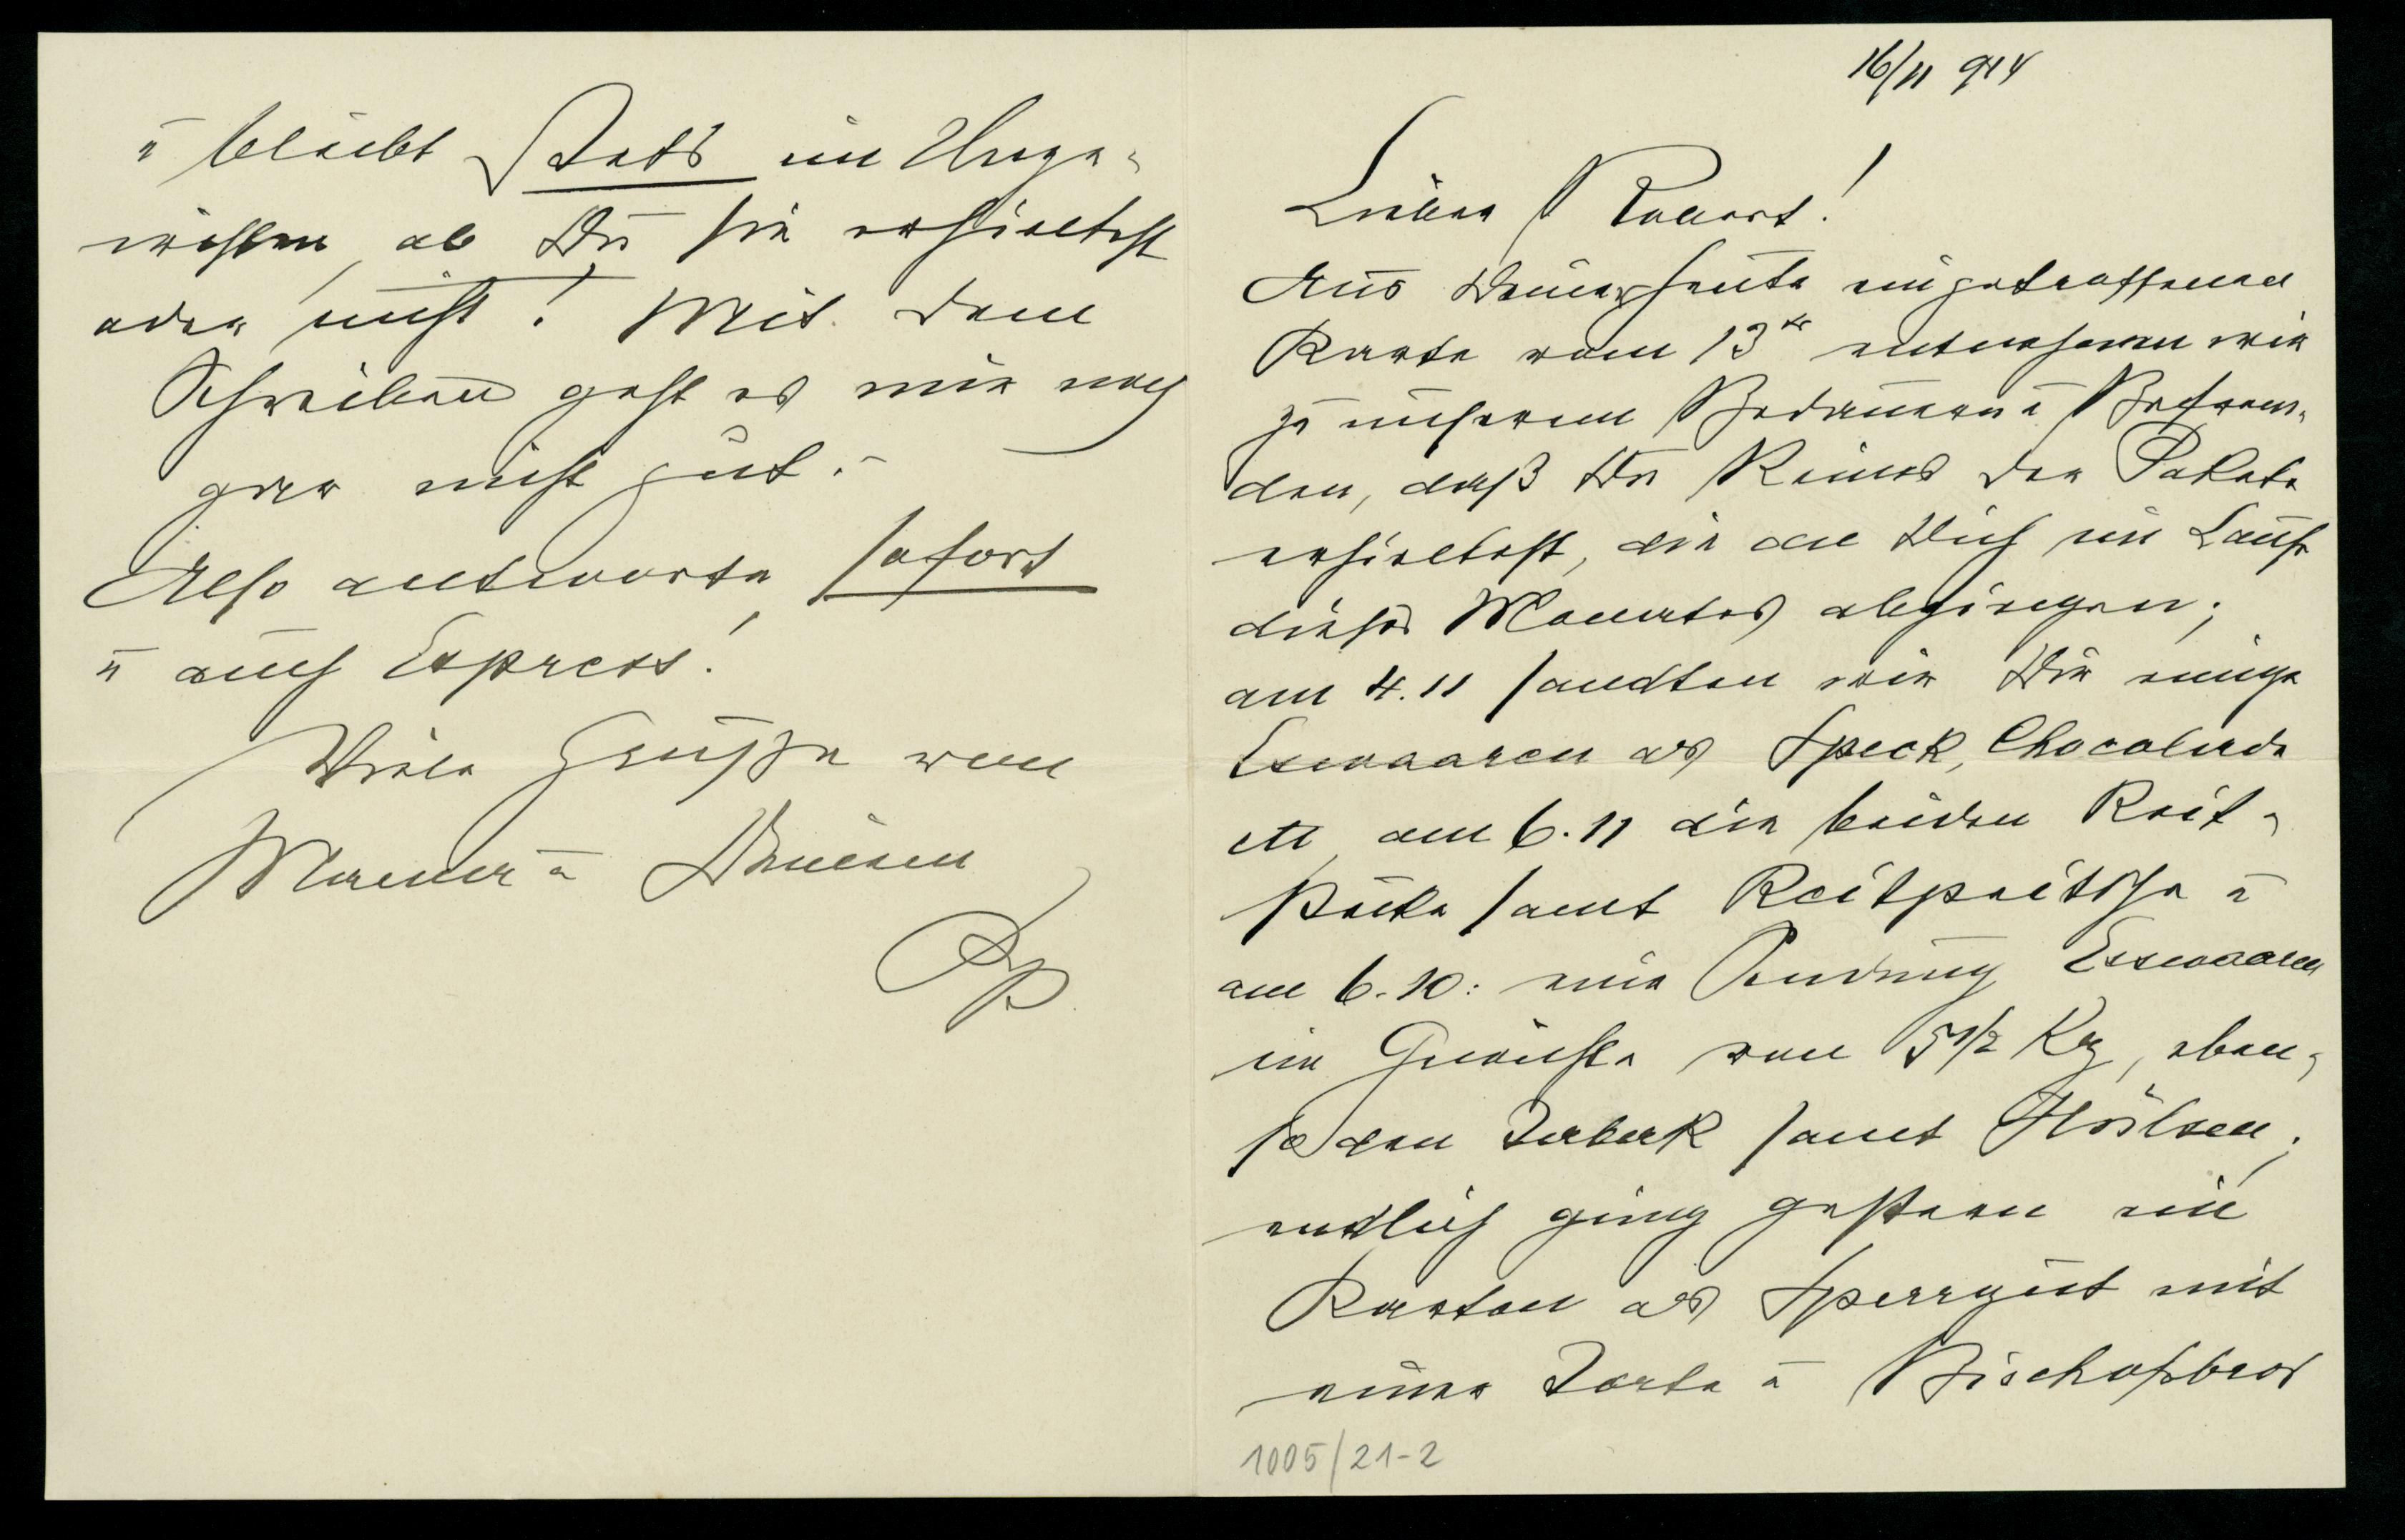 16/11 914
Lieber Robert!
Aus Deiner heute eingetroffenen
Karte vom 13ten entnehmen wir
zu unserem Bedauern u Befrem-
den, daß Du Keines der Pakete
erhieltest, die an Dich im Laufe
dieses Monates abgingen;
am 4.11 sandten wir Dir einige
Esswaaren als Speck, Chocolade
etc, am 6.11 die beiden Reit-
stöcke samt Reitpeitsche u
am 6.10: eine Sendung Esswaaren
im Gewichte von 5 1/2 Kg, eben-
so den Tabak samt Hülsen;
endlich ging gestern ein
Karton als Sperrgut mit
einer Torte u Bischofsbrod
1005/21-2
u bleibt stets im Unge-
wissen, ob Du sie erhieltest
oder nicht! Mit dem
Schreiben geht es mir noch
gar nicht gut.-
Also antworte sofort
u auch Express!
Viele Grüße von
Mama u Deinem
Pp